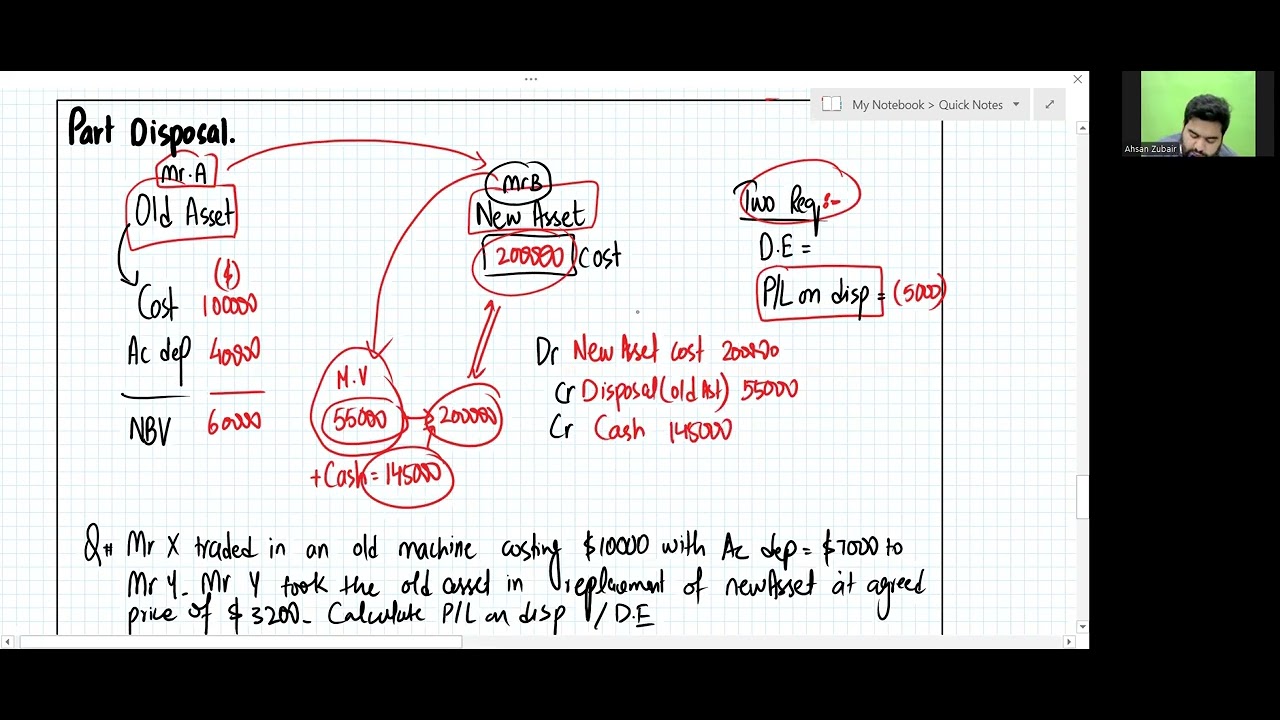 My Notebook > Quick Notes
Ahsan Zubair
Part Disposal.
Mr.A
Old Asset
($)
Cost 100000
Ac dep 40000
NBV 60000
Mr B
New Asset
200000 Cost
M.V
55000 → 200000
+ Cash = 145000
Two Req :-
D.E =
P/L on disp = (5000)
Dr New Asset cost 200000
Cr Disposal (old Ast) 55000
Cr Cash 145000
Q# Mr X traded in an old machine costing $10000 with Ac dep = $7000 to
Mr Y. Mr Y took the old asset in replacement of new Asset at agreed
price of $3200. Calculate P/L on disp / D.E